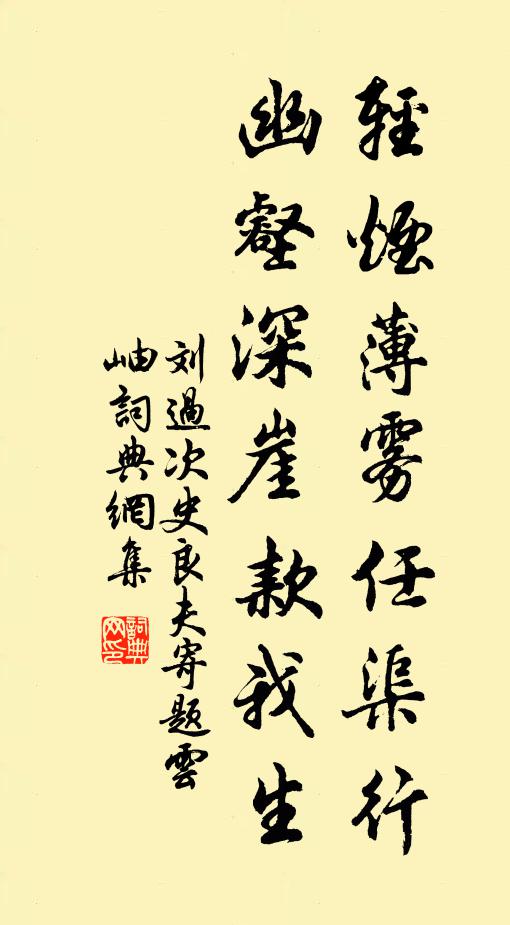 輕煙薄雾任渠行
幽壑深崖款我生
刘過次史良夫寄題雲
岫詞典網集
詞典
网印